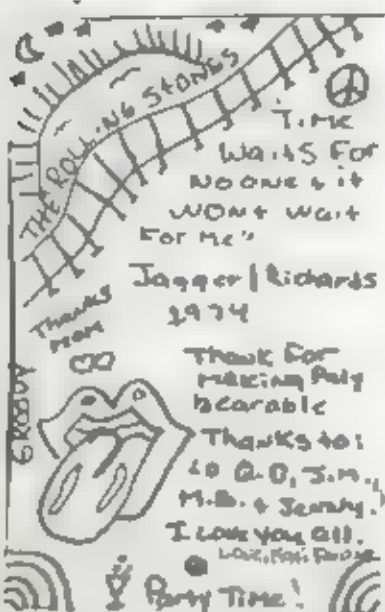 THE ROLLING STONES
Time
Waits For
No one & it
Wont wait
For me"
Jagger | Richards
1974
Thanks
Mom
GROOVY
Thank For
making
bearable
Thanks to:
J.M.,
M.B. & Jenny.
I Love you all.
Love,
Party Time!